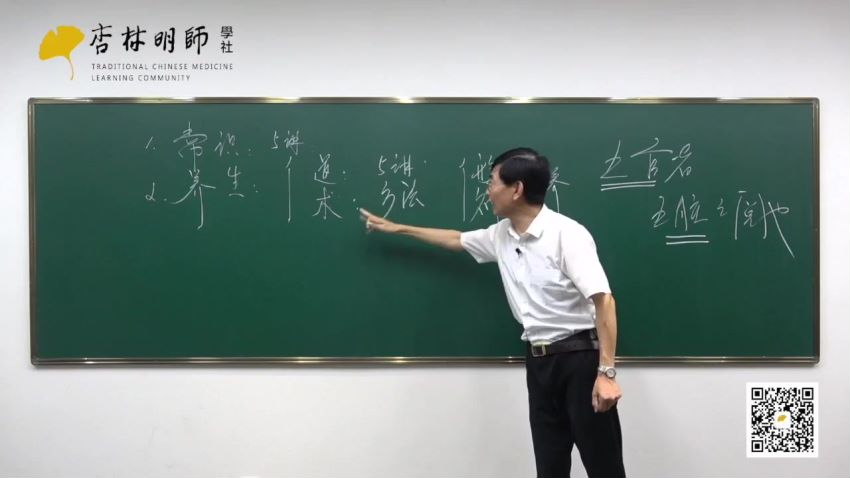 杏林明師 學社
TRADITIONAL CHINESE MEDICINE
LEARNING COMMUNITY
1. 常识：5讲
2. 养生：
道：5讲
术：方法
养
五官者
五脏之阅也